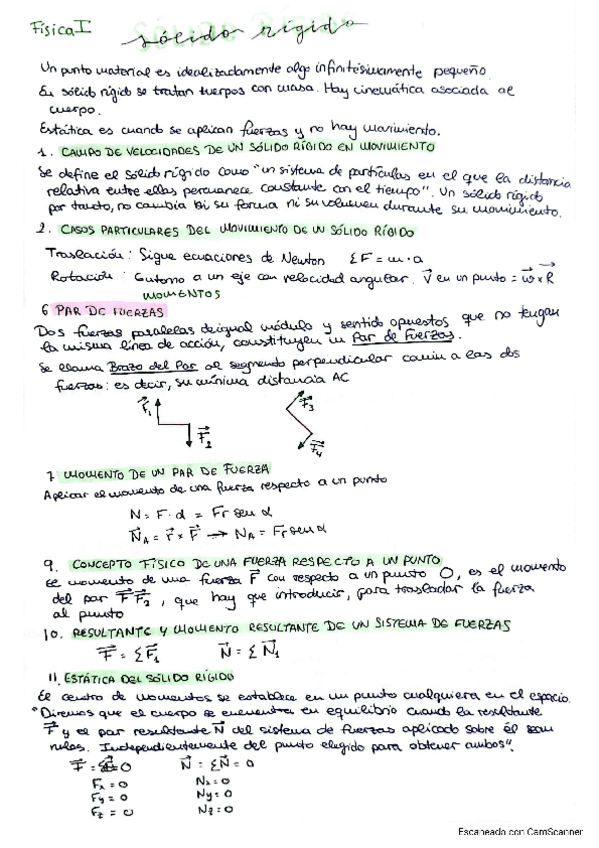 Física I
Sólido rígido
Un punto material es idealizadamente algo infinitésimamente pequeño.
En sólido rígido se tratan cuerpos con masa. Hay cinemática asociada al
cuerpo.
Estática es cuando se aplican fuerzas y no hay movimiento.
1. CAMPO DE VELOCIDADES DE UN SÓLIDO RÍGIDO EN MOVIMIENTO
Se define el sólido rígido como "un sistema de partículas en el que la distancia
relativa entre ellas permanece constante con el tiempo". Un sólido rígido
por tanto, no cambia ni su forma ni su volumen durante su movimiento.
2. CASOS PARTICULARES DEL MOVIMIENTO DE UN SÓLIDO RÍGIDO
Traslación: Sigue ecuaciones de Newton ΣF = m·a
Rotación: Entorno a un eje con velocidad angular. V⃗ en un punto = w⃗ x R⃗
MOMENTOS
6 PAR DE FUERZAS
Dos fuerzas paralelas de igual módulo y sentido opuestos que no tengan
la misma línea de acción, constituyen un Par de Fuerzas.
Se llama Brazo del Par al segmento perpendicular común a las dos
fuerzas: es decir, su mínima distancia AC
F⃗1
F⃗2
F⃗3
F⃗4
7 MOMENTO DE UN PAR DE FUERZA
Aplicar el momento de una fuerza respecto a un punto
N = F · d = Fr sen α
N⃗A = r⃗ x F⃗ → NA = Fr sen α
9. CONCEPTO FÍSICO DE UNA FUERZA RESPECTO A UN PUNTO
El momento de una fuerza F⃗ con respecto a un punto O, es el momento
del par F⃗ F⃗2, que hay que introducir, para trasladar la fuerza
al punto
10. RESULTANTE Y MOMENTO RESULTANTE DE UN SISTEMA DE FUERZAS
F⃗ = ΣF⃗1 N⃗ = ΣN⃗1
11. ESTÁTICA DEL SÓLIDO RÍGIDO
El centro de momentos se establece en un punto cualquiera en el espacio.
"Diremos que el cuerpo se encuentra en equilibrio cuando la resultante
F⃗ y el par resultante N⃗ del sistema de fuerzas aplicado sobre él sean
nulos. Independientemente del punto elegido para obtener ambos".
F⃗ = 0 N⃗ = ΣN⃗ = 0
Fx = 0 Nx = 0
Fy = 0 Ny = 0
Fz = 0 Nz = 0
Escaneado con CamScanner